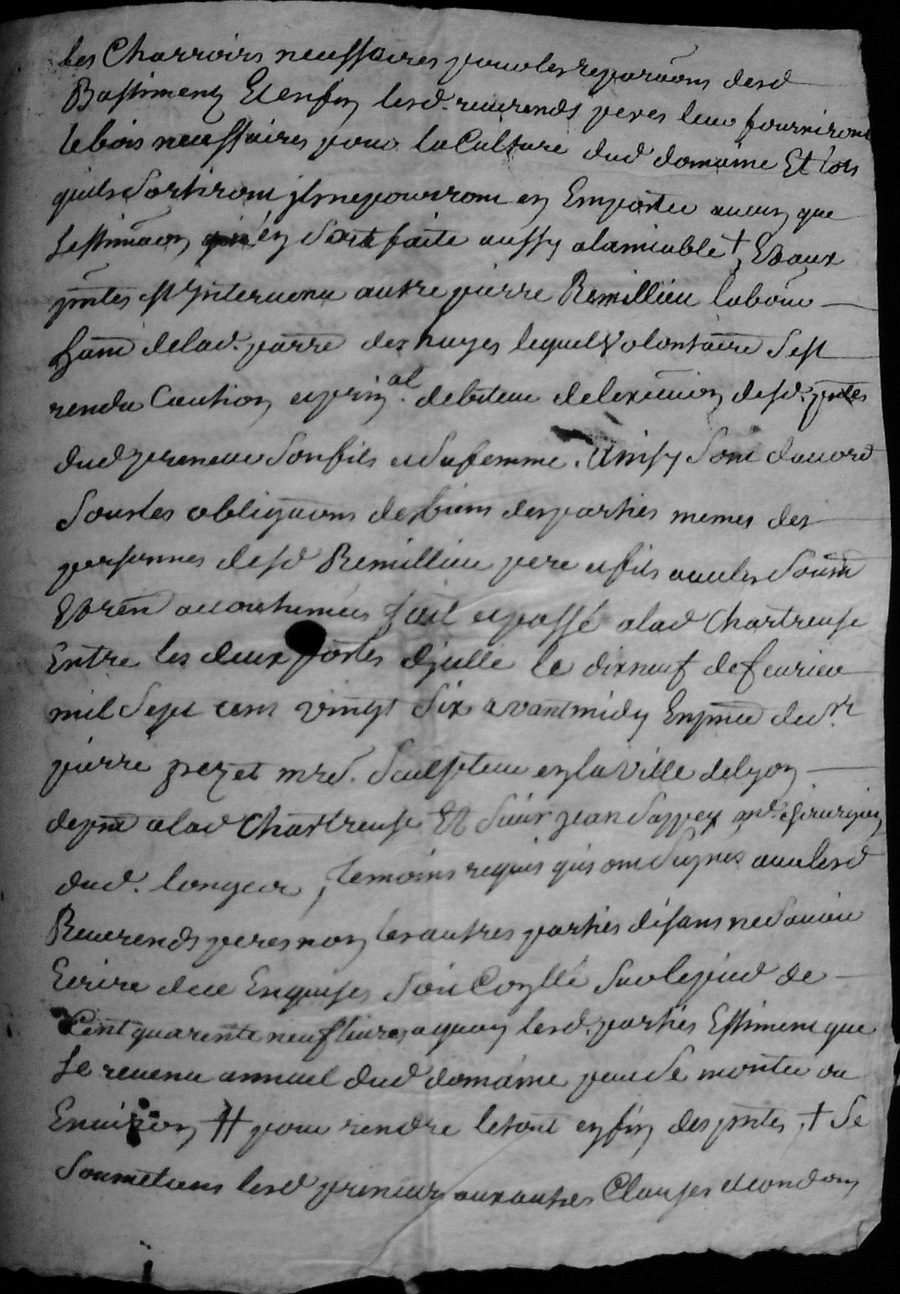 les Charroirs neussaires pour les reparâons desd
Bastiments Et enfin lesd. reverends peres leur fourniront
le bois neuessaires pour la Culture dud domaine Et lors
quils Sortiront jls ne pourront en Emporter aucun que
Lestimâon en Soit faite aussy alamiable + Et aux
pntes est Jntervenu autre pierre Remillieu labou
delad. parre des hayes lequel Volontaire Sest
rendu Caution et prin.al debiteur delexecution desd. pntes
dud preneur Son fils et Sa femme. Ainsy Sont daccord
Sous les obligaons des biens des parties memes des
personnes desd Remillieu pere et fils avec les Soum
Et ren accoutumées fait et passé alad Chartreuse
Entre les deux portes Jcelle le dixneuf de fevrier
mil Sept cens vingt Six avant midy En pnce de Sr
pierre prezet mre. Sculpteur en la Ville de lyon
de pnt alad Chartreuse Et Sieur Jean Sappey md. Chirurgien
dud. longea, temoins requis qui ont Signes avec lesd
Reverends peres non les autres parties disans ne Savoir
Ecrire de ce Enquises Soit Conllé Sur le pied de
Cent quarente neuf livres aquoy lesd. parties Estiment que
Le revenu annuel dud domaine peut Se monter ou
Environ # pour rendre letout en fin des pntes, + Se
Soumetians lesd preneurs aux autres Clauses et condons